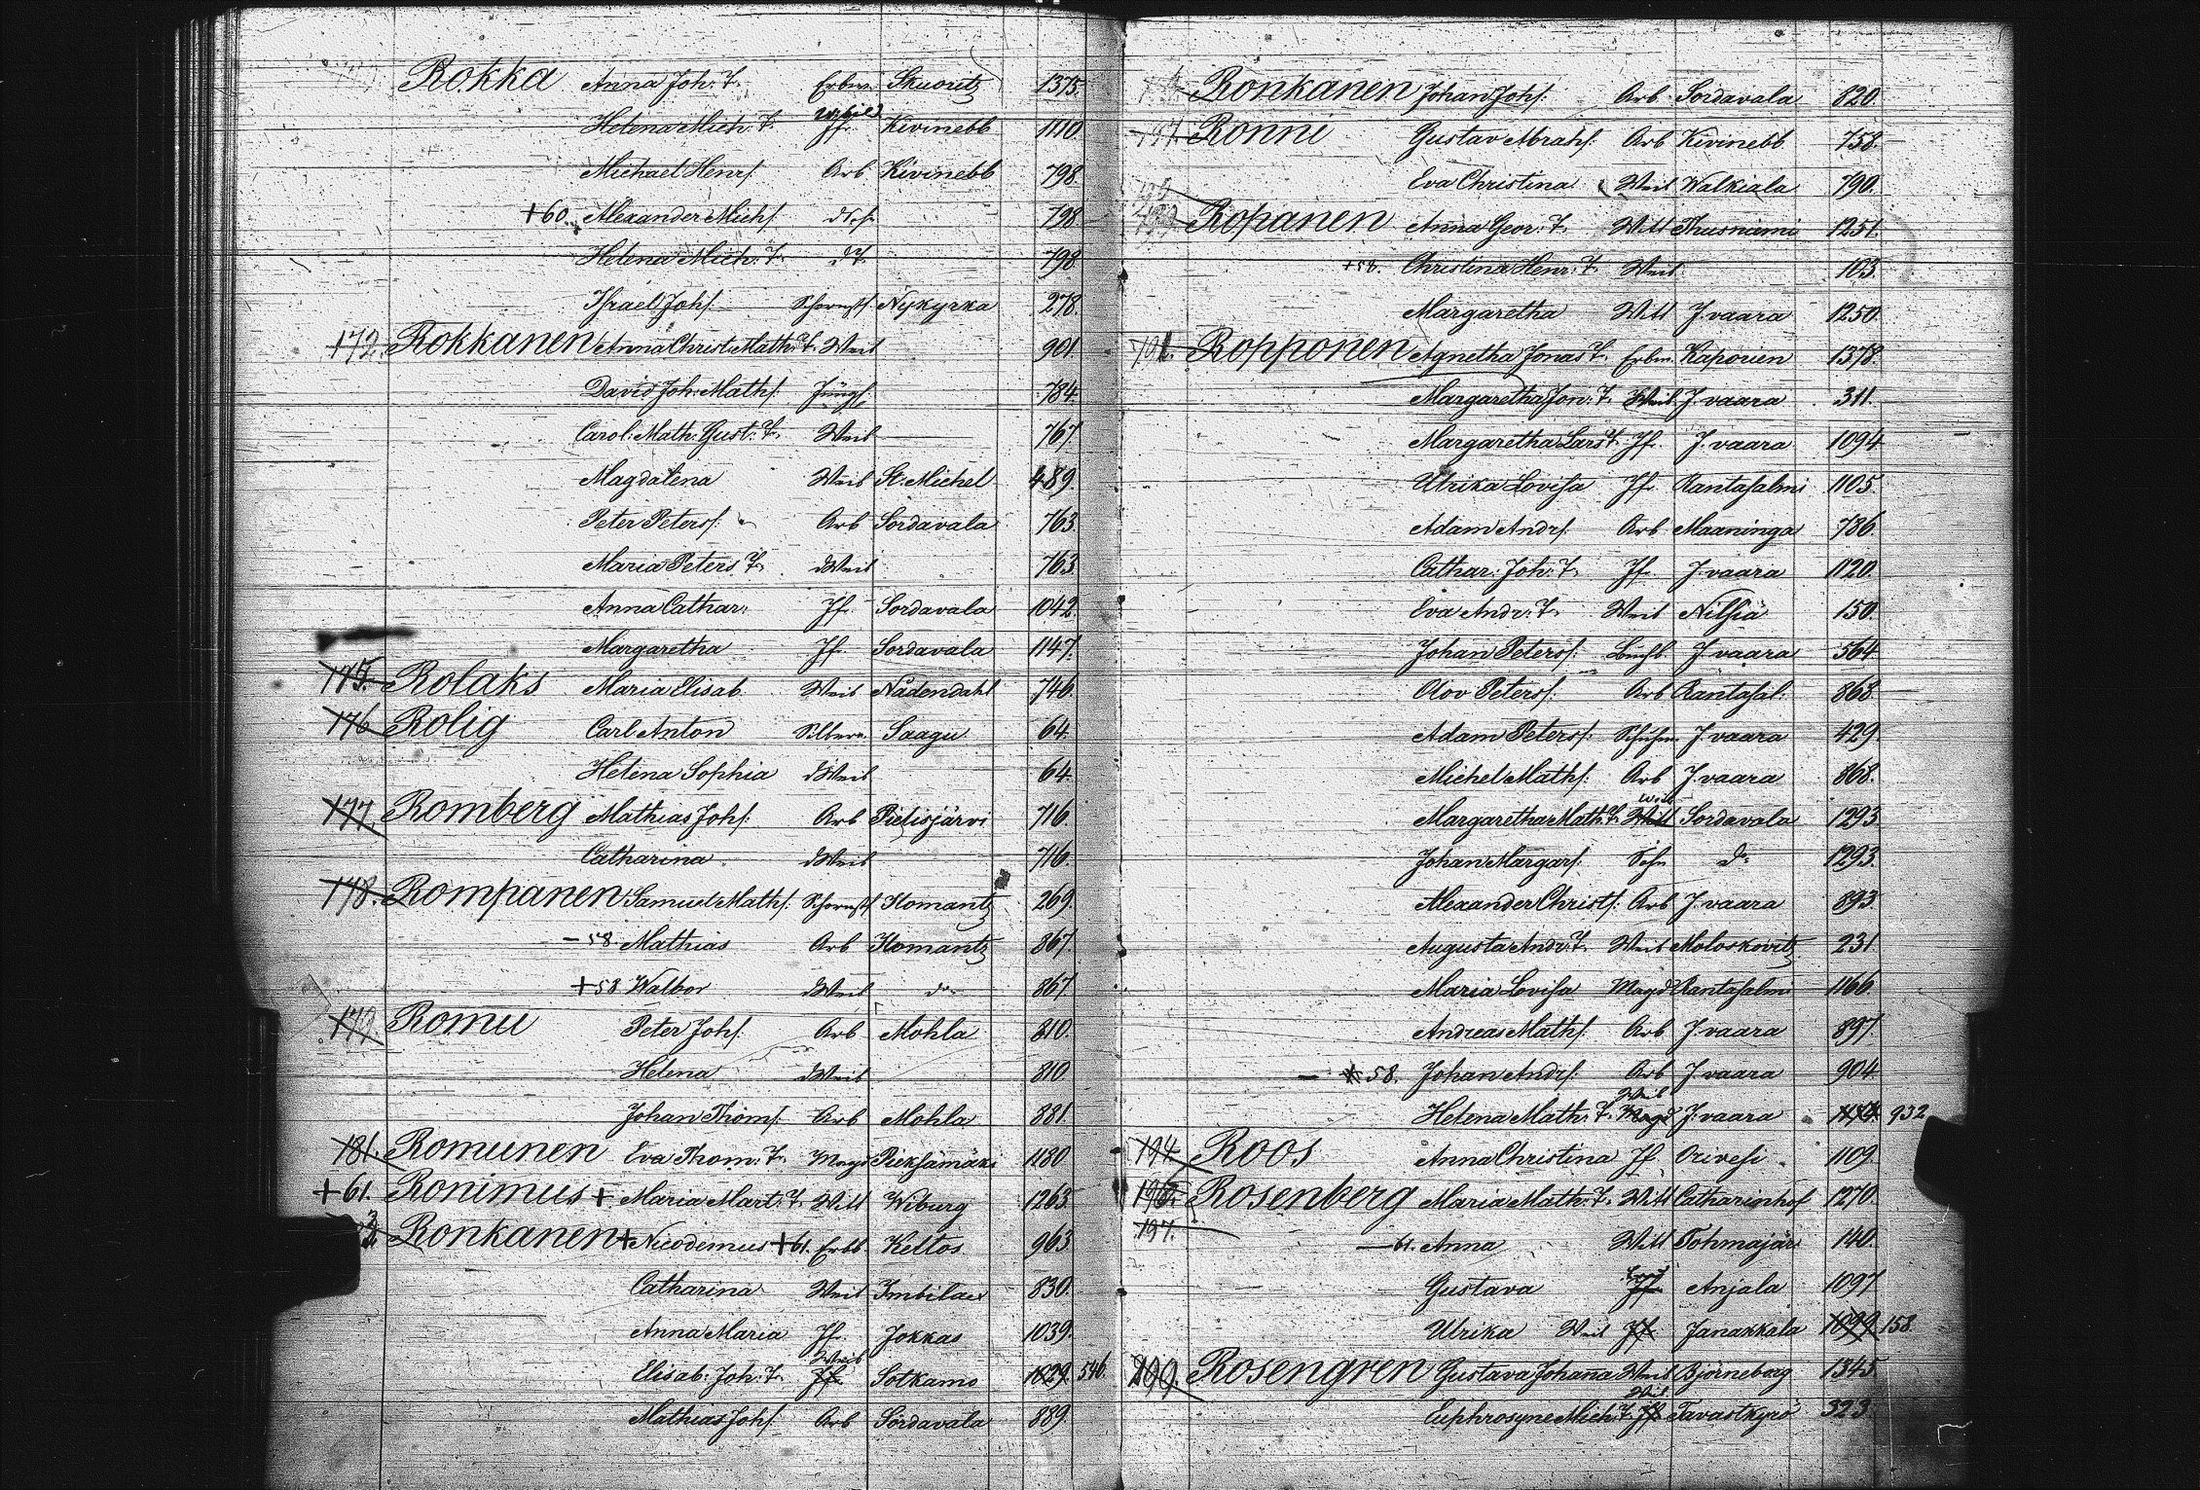 Rokka Anna Joh. T. Erbm. Skuoritz 1375
Helena Mich. T. Jf. Kivinebb 1110
Michael Henrs. Arb Kivinebb 798
+60. Alexander Michs. 798
Helena Mich. T. dT. 798
Israel Johs. Schornstf. Nykyrka 278.
172. Rokkanen Anna Christ. Math. T. Weib 901
David Joh. Maths. Jüngl. 784
Carol. Math. Gust. T. Weib 767
Magdalena Weib St. Michel 489.
Peter Peters. Arb Sordavala 763.
Maria Peters T. dWeib 763
Anna Cathar. Jf. Sordavala 1042
Margaretha Jf. Sordavala 1147.
175. Rolaks Maria Elisab. Weib Nådendahl 746.
176 Rolig Carl Anton Silberar. Saagu 64.
Helena Sophia dWeib 64.
177. Romberg Mathias Johs. Arb Pielisjärvi 716.
Catharina dWeib 716.
178. Rompanen Samuel Maths. Schornstf Ilomantz 269
-58. Mathias Arb Ilomantz 867.
+58 Walbor dWeib do 867
179 Romu Peter Johs. Arb Mohla 810.
Helena dWeib 810
Johan Thoms. Arb Mohla 881.
181. Romunen Eva Thom. T. Magd Pieksämäki 1180
+61. Ronimus + Maria Mart. T. Witt Wiburg 1263
Ronkanen + Nicodemus +61. Erbb Keltos 963
Catharina Weib Imbilax 830.
Anna Maria Jf. Jokkas 1039.
Weib
Elisab. Joh. T. Jf. Sotkamo 1029. 546.
Mathias Johs. Arb Sordavala 889.
Ronkanen Johan Johs. Arb Sordavala 820.
Ronni Gustav Abrahs. Arb Kivinebb 758.
Eva Christina Weib Walkiala 790.
Ropanen Anna Geor. T. Witt Thusniemi 1251.
+58. Christina Henr. T. Weib 103.
Margaretha Witt J. vaara 1250.
191. Ropponen Agnetha Jonas T. Erbm. Kaporien 1378.
Margaretha Jon. T. Weib J. vaara 311.
Margaretha Lars T. Jf. J. vaara 1094
Ulrika Lovisa Jf. Rantasalmi 1105.
Adam Andrs. Arb Maaninga 786.
Cathar. Joh. T. Jf. J. vaara 1120.
Eva Andr. T. Weib Nilsiä 150.
Johan Peters. J. vaara 564
Olov Peters. Arb Rantasal. 868.
Adam Peters. Schuhm. J. vaara 429.
Michel Maths. Arb J. vaara 868.
Weib
Margaretha Math. T. Witt Sordavala 1293.
Johan Margars. Sohn do 1293.
Alexander Christs. Arb J. vaara 893.
Augusta Andr. T. Weib Moloskovitz 231.
Maria Lovisa Magd Rantasalmi 1166.
Andreas Maths. Arb J. vaara 897.
58. Johan Andrs. Arb J. vaara 904.
Weib
Helena Math. T. Magd J. vaara 932
194 Roos Anna Christina Jf. Orivesi 1109.
Rosenberg Maria Math. T. Witt Catharinhof 1270.
197. -61. Anna Witt Tohmajär. 140.
Gustava Jf. Anjala 1097
Ulrika Weib Jf. Janakkala 1099 158.
Rosengren Gustava Johana Weib Björneborg 1345
Weib
Euphrosyne Mich. T. Jf. Tavastkyro 323.